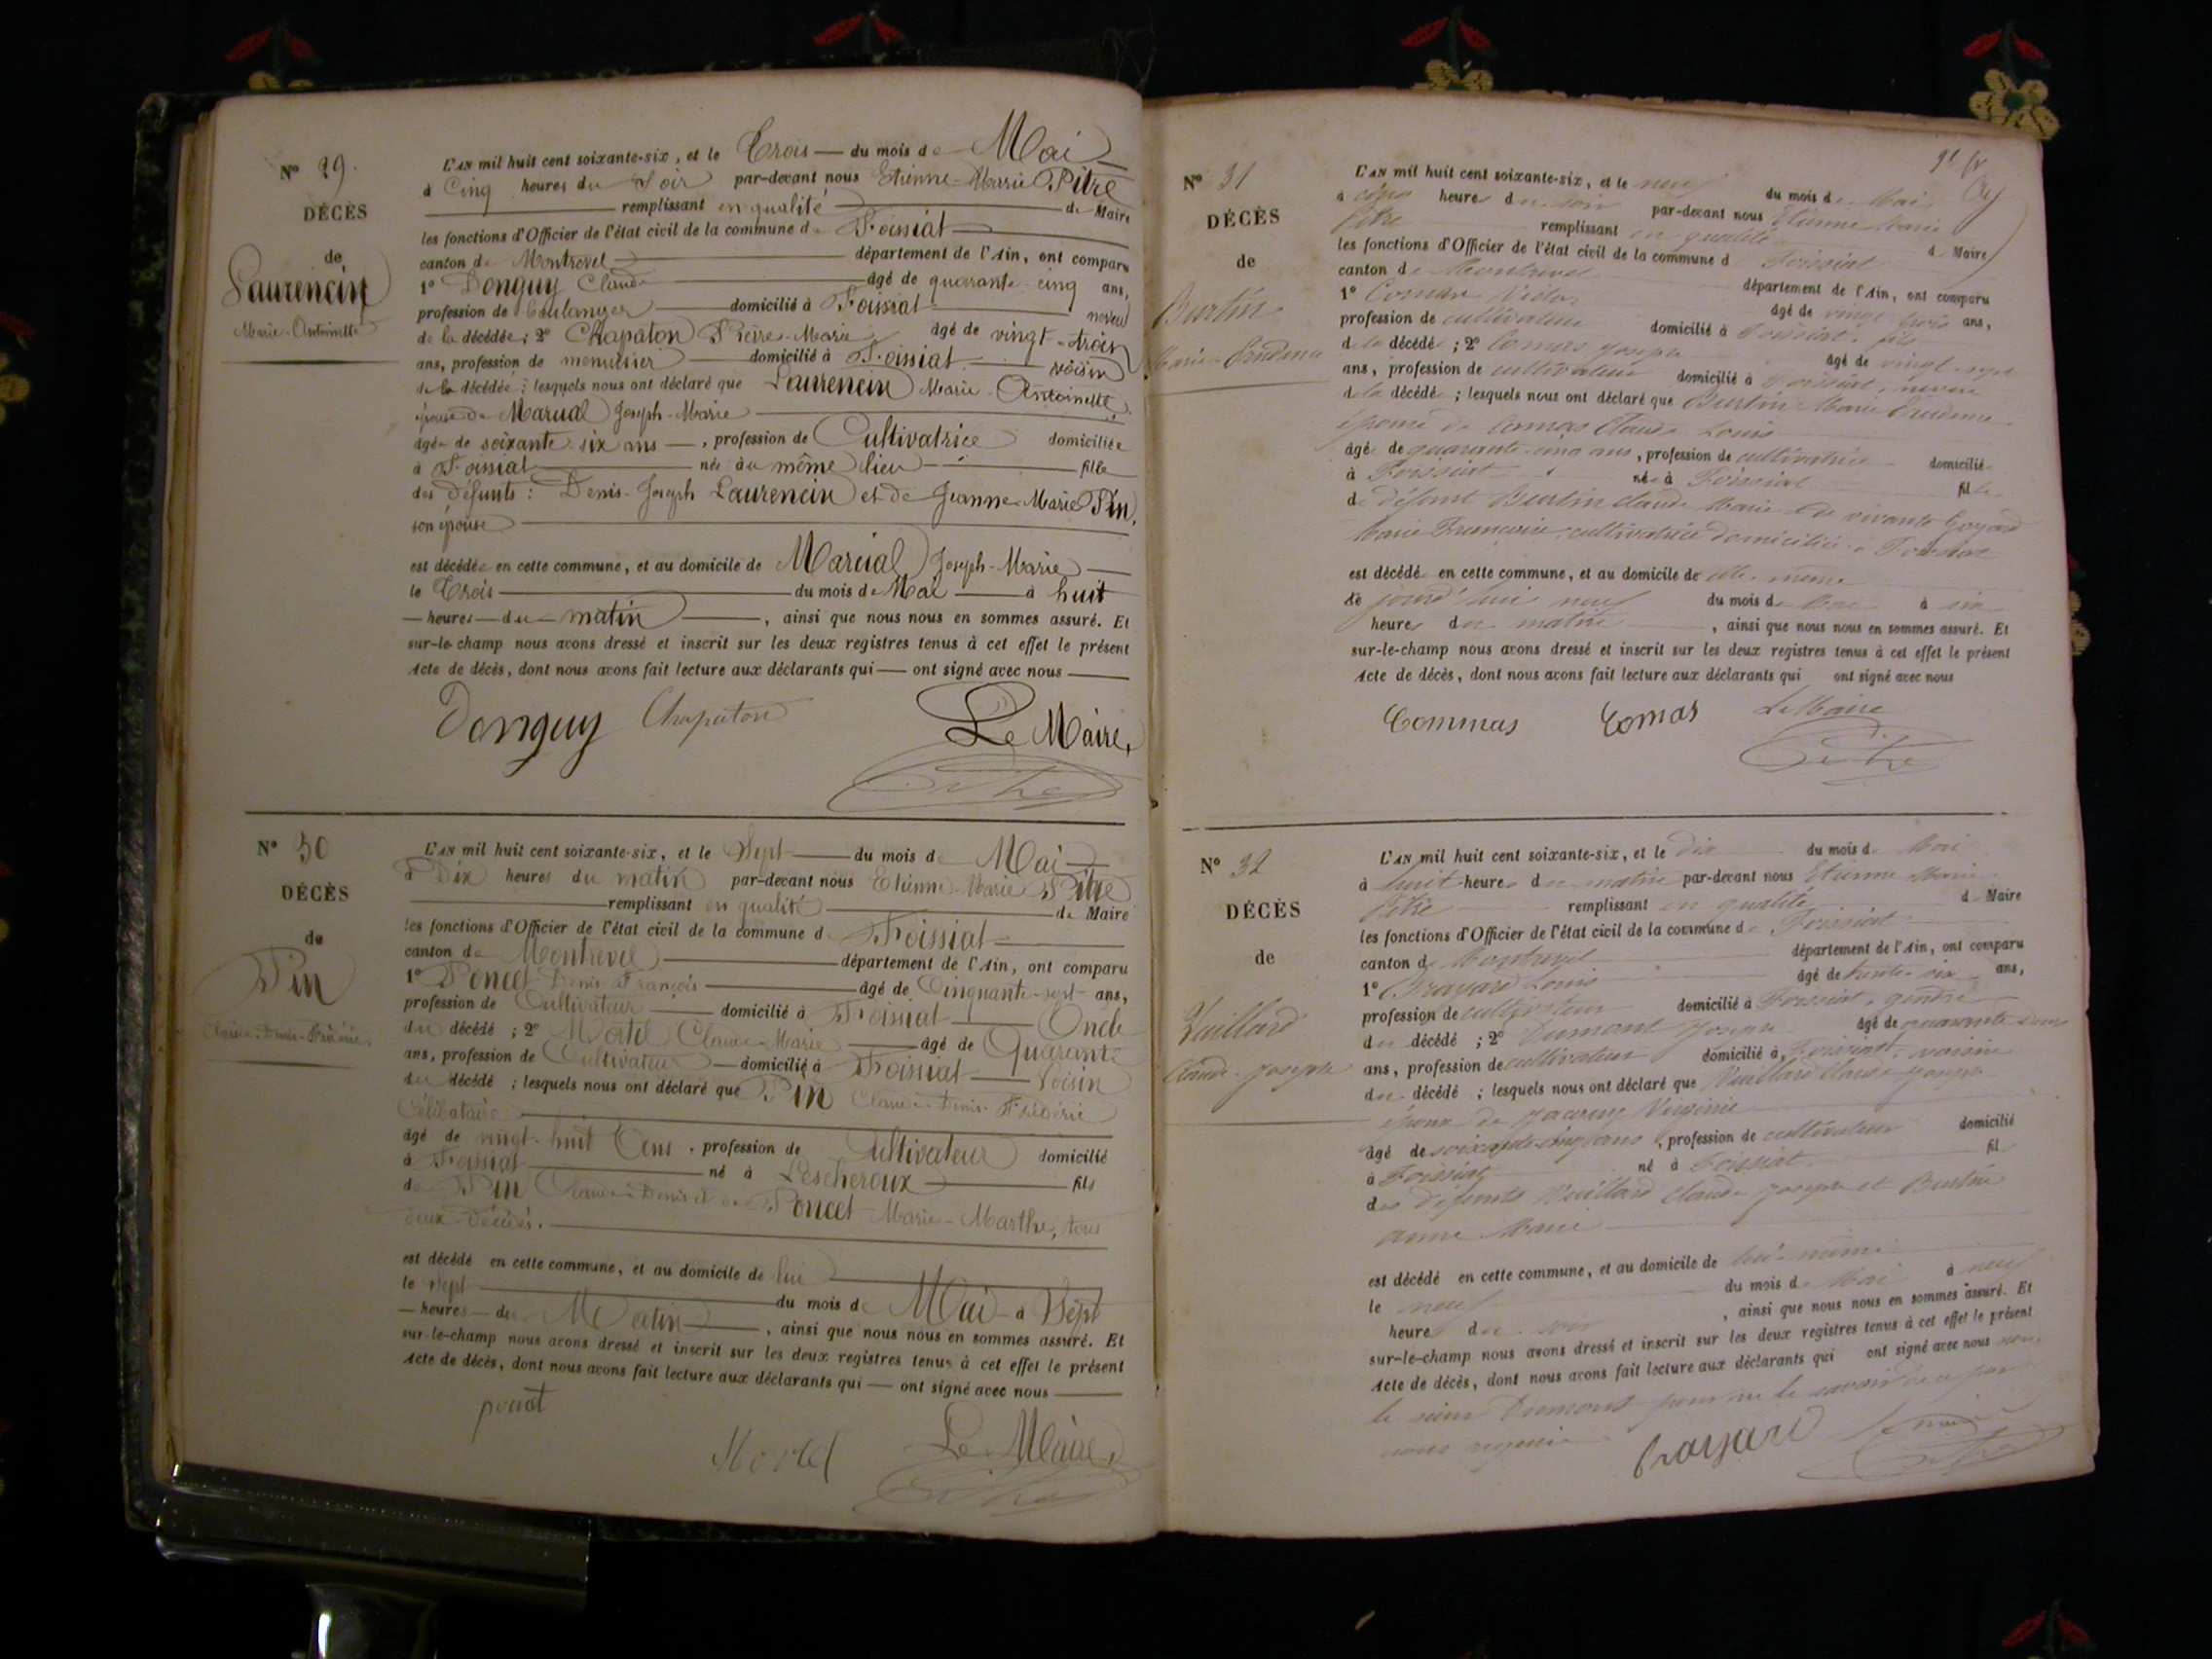 N° 29.
DÉCÈS
de
Laurencin
Marie-Antoinette
L'AN mil huit cent soixante-six, et le Trois du mois de Mai
à Cinq heures du Soir par-devant nous Etienne-Marie Pitre
remplissant en qualité de Maire
les fonctions d'Officier de l'état civil de la commune de Foissiat
canton de Montrevel département de l'Ain, ont comparu
1° Donguy Claude âgé de quarante-cinq ans,
profession de Boulanger domicilié à Foissiat neveu
de la décédée; 2° Chapaton Pierre-Marie âgé de vingt-trois
ans, profession de menuisier domicilié à Foissiat voisin
de la décédée; lesquels nous ont déclaré que Laurencin Marie-Antoinette,
épouse de Marual Joseph-Marie
âgée de soixante-six ans, profession de Cultivatrice domiciliée
à Foissiat née au même lieu fille
des défunts: Denis-Joseph Laurencin et de Jeanne-Marie Pin,
son épouse
est décédée en cette commune, et au domicile de Marual Joseph-Marie
le Trois du mois de Mai à huit
heures du matin, ainsi que nous nous en sommes assuré. Et
sur-le-champ nous avons dressé et inscrit sur les deux registres tenus à cet effet le présent
Acte de décès, dont nous avons fait lecture aux déclarants qui ont signé avec nous
Donguy Chapaton Le Maire,
Pitre
N° 30
DÉCÈS
de
Pin
Claude-Denis-Frédéric.
L'AN mil huit cent soixante-six, et le Sept du mois de Mai
à Dix heures du matin par-devant nous Etienne-Marie Pitre
remplissant en qualité de Maire
les fonctions d'Officier de l'état civil de la commune de Foissiat
canton de Montrevel département de l'Ain, ont comparu
1° Poncet Denis-François âgé de Cinquante-sept ans,
profession de Cultivateur domicilié à Foissiat Oncle
du décédé; 2° Mortel Claude-Marie âgé de Quarante
ans, profession de Cultivateur domicilié à Foissiat Voisin
du décédé; lesquels nous ont déclaré que Pin Claude-Denis-Frédéric
Célibataire
âgé de vingt-huit ans, profession de Cultivateur domicilié
à Foissiat né à Lescheroux fils
de Pin Claude-Denis et de Poncet Marie-Marthe, tous
deux décédés.
est décédé en cette commune, et au domicile de lui
le Sept du mois de Mai à Sept
heures du Matin, ainsi que nous nous en sommes assuré. Et
sur-le-champ nous avons dressé et inscrit sur les deux registres tenus à cet effet le présent
Acte de décès, dont nous avons fait lecture aux déclarants qui ont signé avec nous
poncet
Mortel Le Maire,
Pitre
N° 31
DÉCÈS
de
Burtin
Marie-Prudence
L'AN mil huit cent soixante-six, et le neuf du mois de Mai
à cinq heures du soir par-devant nous Etienne Marie
Pitre remplissant en qualité de Maire
les fonctions d'Officier de l'état civil de la commune d Foissiat
canton de Montrevel département de l'Ain, ont comparu
1° Comas Victor âgé de vingt trois ans,
profession de cultivateur domicilié à Foissiat, fils
de la décédée; 2° Comas Joseph âgé de vingt-sept
ans, profession de cultivateur domicilié à Foissiat, neveu
de la décédée; lesquels nous ont déclaré que Burtin Marie Prudence
épouse de Comas Claude Louis
âgée de quarante-cinq ans, profession de cultivatrice domiciliée
à Foissiat née à Foissiat fille
de défunt Burtin Claude Marie et de vivante Goyard
Marie Françoise, cultivatrice domiciliée à Foissiat
est décédée en cette commune, et au domicile de elle-même
le jourd'hui neuf du mois de Mai à six
heures du matin, ainsi que nous nous en sommes assuré. Et
sur-le-champ nous avons dressé et inscrit sur les deux registres tenus à cet effet le présent
Acte de décès, dont nous avons fait lecture aux déclarants qui ont signé avec nous
Commas Comas Le Maire
Pitre
N° 32
DÉCÈS
de
Vuillard
Claude-Joseph
L'AN mil huit cent soixante-six, et le dix du mois de Mai
à huit heures du matin par-devant nous Etienne Marie
Pitre remplissant en qualité de Maire
les fonctions d'Officier de l'état civil de la commune de Foissiat
canton de Montrevel département de l'Ain, ont comparu
1° Brayard Louis âgé de trente-six ans,
profession de cultivateur domicilié à Foissiat, gendre
du décédé; 2° Dumont Joseph âgé de quarante deux
ans, profession de cultivateur domicilié à Foissiat, voisin
du décédé; lesquels nous ont déclaré que Vuillard Claude Joseph
époux de Virginie
âgé de soixante-cinq ans, profession de cultivateur domicilié
à Foissiat né à Foissiat fil
des défunts Vuillard Claude Joseph et Burtin
Anne Marie
est décédé en cette commune, et au domicile de lui-même
le neuf du mois de Mai à neuf
heures du soir, ainsi que nous nous en sommes assuré. Et
sur-le-champ nous avons dressé et inscrit sur les deux registres tenus à cet effet le présent
Acte de décès, dont nous avons fait lecture aux déclarants qui ont signé avec nous non
le sieur Dumont pour ne le savoir de ce par
nous requis
Brayard Le Maire
Pitre